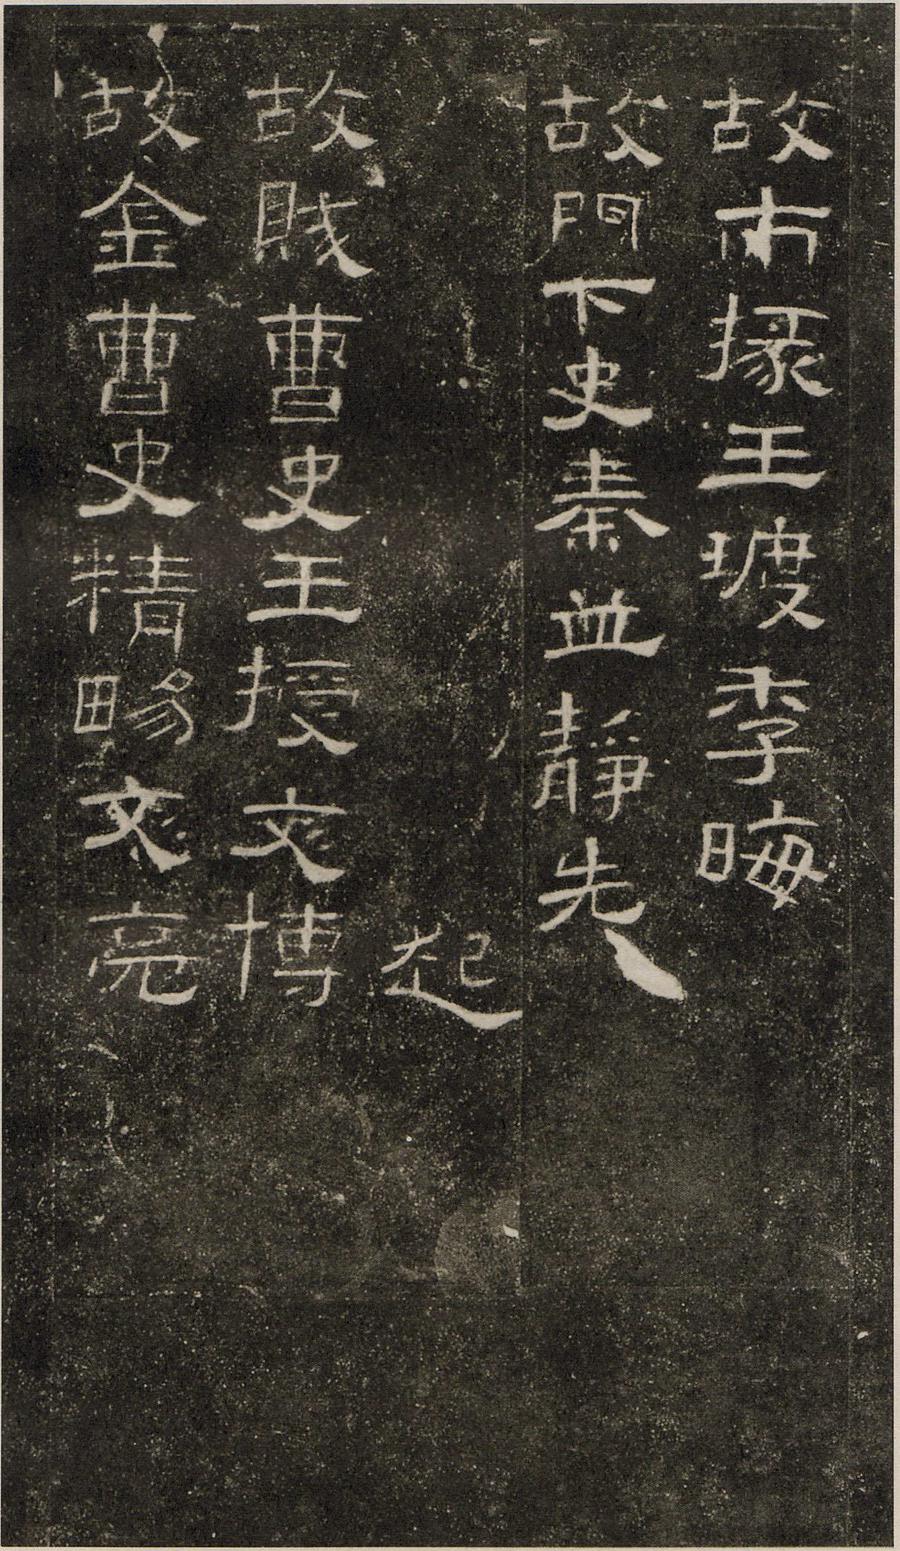 故市掾王季晦
故門下史秦並靜先
起
故賊曹史王授文博
故金曹史精畼文亮